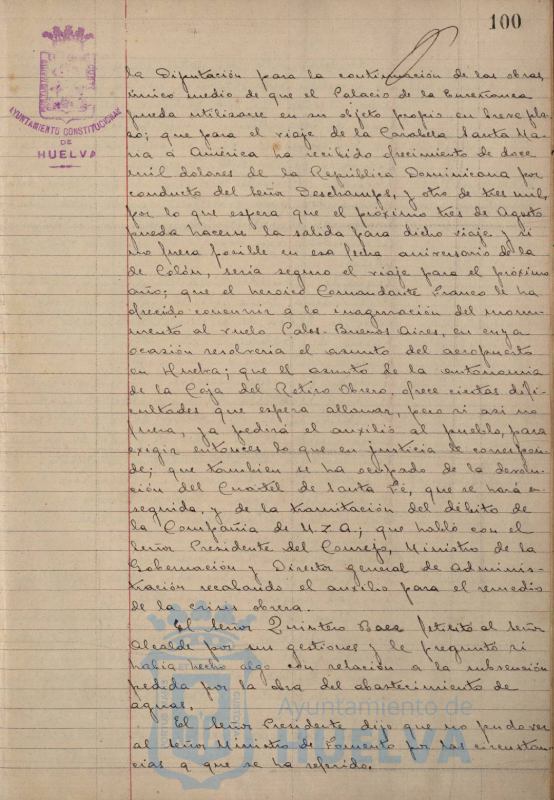 100
AYUNTAMIENTO CONSTITUCIONAL
DE
HUELVA
la Diputación para la continuación de las obras,
único medio de que el Palacio de la Enseñanza
pueda utilizarse en su objeto propio en breve pla-
zo; que para el viaje de la Carabela Santa Ma-
ria á América ha recibido ofrecimiento de doce
mil dolores de la República Dominicana por
conducto del Señor Deschamps, y otro de tres mil,
por lo que espera que el próximo tres de Agosto
pueda hacerse la salida para dicho viaje y si
no fuera posible en esa fecha aniversario de la
de Colón, seria seguro el viaje para el próximo
año; que el heroico Comandante Franco le ha
ofrecido concurrir á la inaguración del monu-
mento al vuelo Palos-Buenos Aires, en cuya
ocasión resolveria el asunto del aeropuerto
en Huelva; que el asunto de la autonomia
de la Caja del Retiro Obrero, ofrece ciertas difi-
cultades que espera allanar, pero si asi no
fuera, ya pedirá el auxilió al pueblo, para
exigir entonces lo que en justicia le correspon-
de; que tambien se ha ocupado de la devolu-
ción del Cuartel de Santa Fé, que se hará en-
seguida, y de la tramitación del débito de
la Compañia de M.Z.A.; que habló con el
Señor Presidente del Consejo, Ministro de la
Gobernación y Director general de Adminis-
tración recabando el auxilio para el remedio
de la crisis obrera.
El Señor Quintero Baez felicitó al Señor
Alcalde por sus gestiones y le preguntó si
habia hecho algo con relación a la subvención
pedida por la obra del abastecimiento de
aguas.
El Señor Presidente dijo que no pudo ver
al Señor Ministro de Fomento por las circunstan-
cias a que se ha referido.
Ayuntamiento de
HUELVA